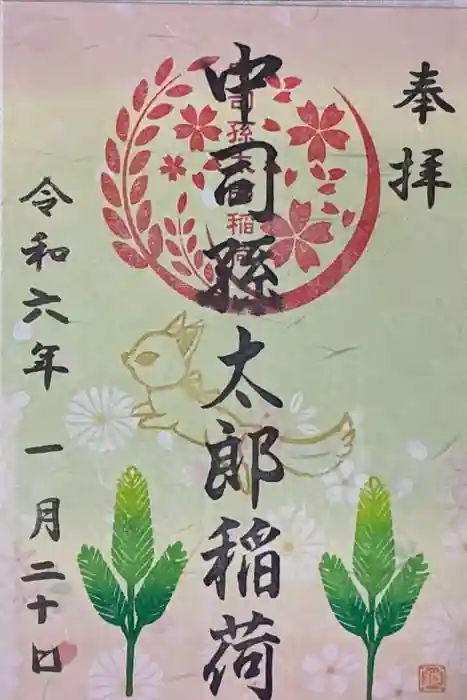 奉拝
中司孫太郎稲荷
令和六年一月二十日